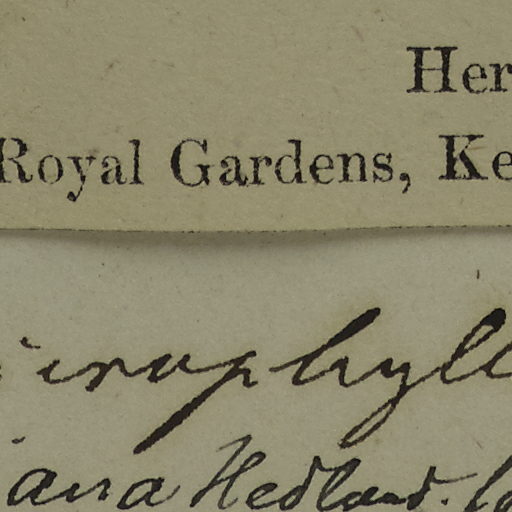 Her
Royal Gardens, Ke
icrophyll
ana Hedland. Co